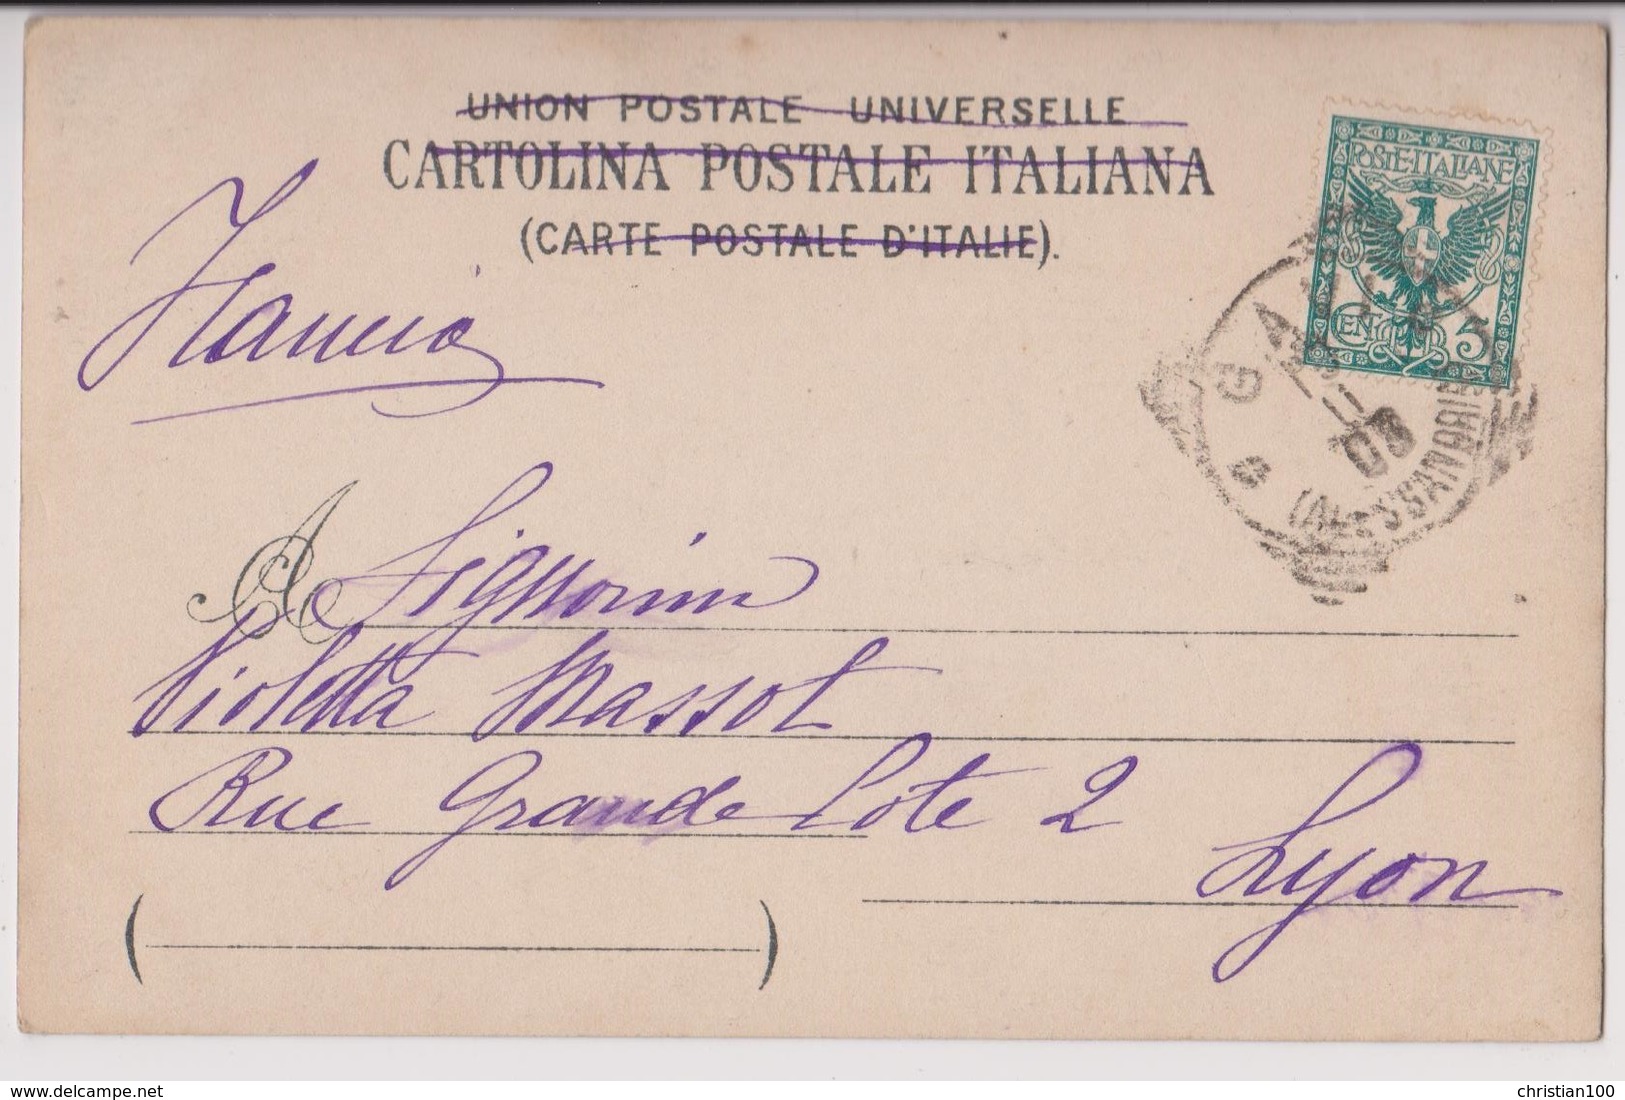 UNION POSTALE UNIVERSELLE
CARTOLINA POSTALE ITALIANA
(CARTE POSTALE D'ITALIE).
POSTE ITALIANE
CEN. 5
(ALESSANDRIA)
03
Francia
A Signorina
Violetta Massot
Rue Grande Cote 2
Lyon
www.delcampe.net
christian100